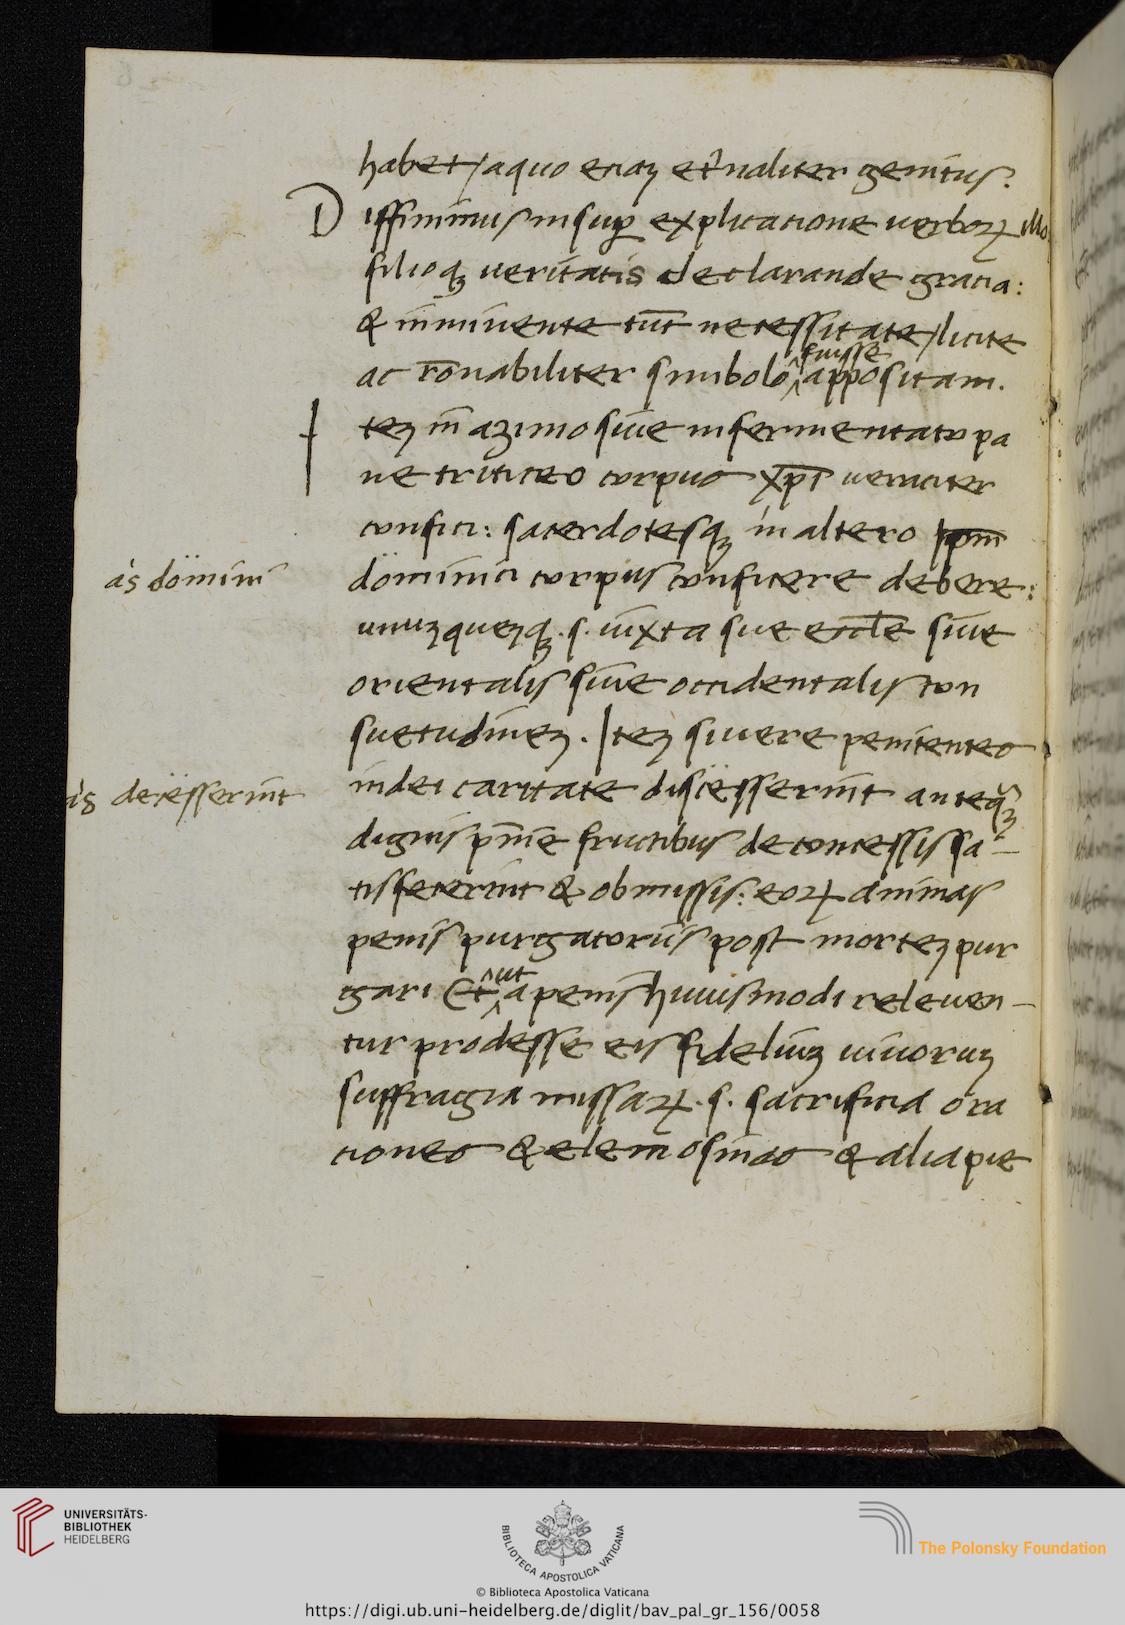 habet/ aquo etiaʒ et̓naliter genitus.
Diffinimus insuꝑ explicatione uerboꝝ illo
filioqʒ ueritatis declarande gratia:
& imminente tūc necessitate/ licite
ac rōnabiliter simbolo ^fuisse^ appositam.
Iteʒ in̄ azimo siue infermentato pa
ne triticeo corpus xp̄i ueraciter
confici: sacerdotesqʒ in altero Ip̄m
dominici corpus conficere debere:
as domini
unuʒqueʒqʒ .s. iuxta sue eccl̄e siue
orientalis siue occidentalis con
suetudineʒ. Iteʒ siuere penitentes
indei caritate discesserint anteqʒ
as decesserint
dignis pn̄ie fructibus decomessis sa-
tisfecerint & obmissis: eoꝝ animas
penis purgatoriis post morteʒ pur
gari Et ^ut^ apenis huiusmodi releuen-
tur prodesse eis fideliuʒ uiuoruʒ
suffragia missaꝝ .s. sacrificia ora
tiones & elemosinas & alia pie
UNIVERSITÄTS-
BIBLIOTHEK
HEIDELBERG
BIBLIOTECA APOSTOLICA VATICANA
The Polonsky Foundation
© Biblioteca Apostolica Vaticana
https://digi.ub.uni-heidelberg.de/diglit/bav_pal_gr_156/0058